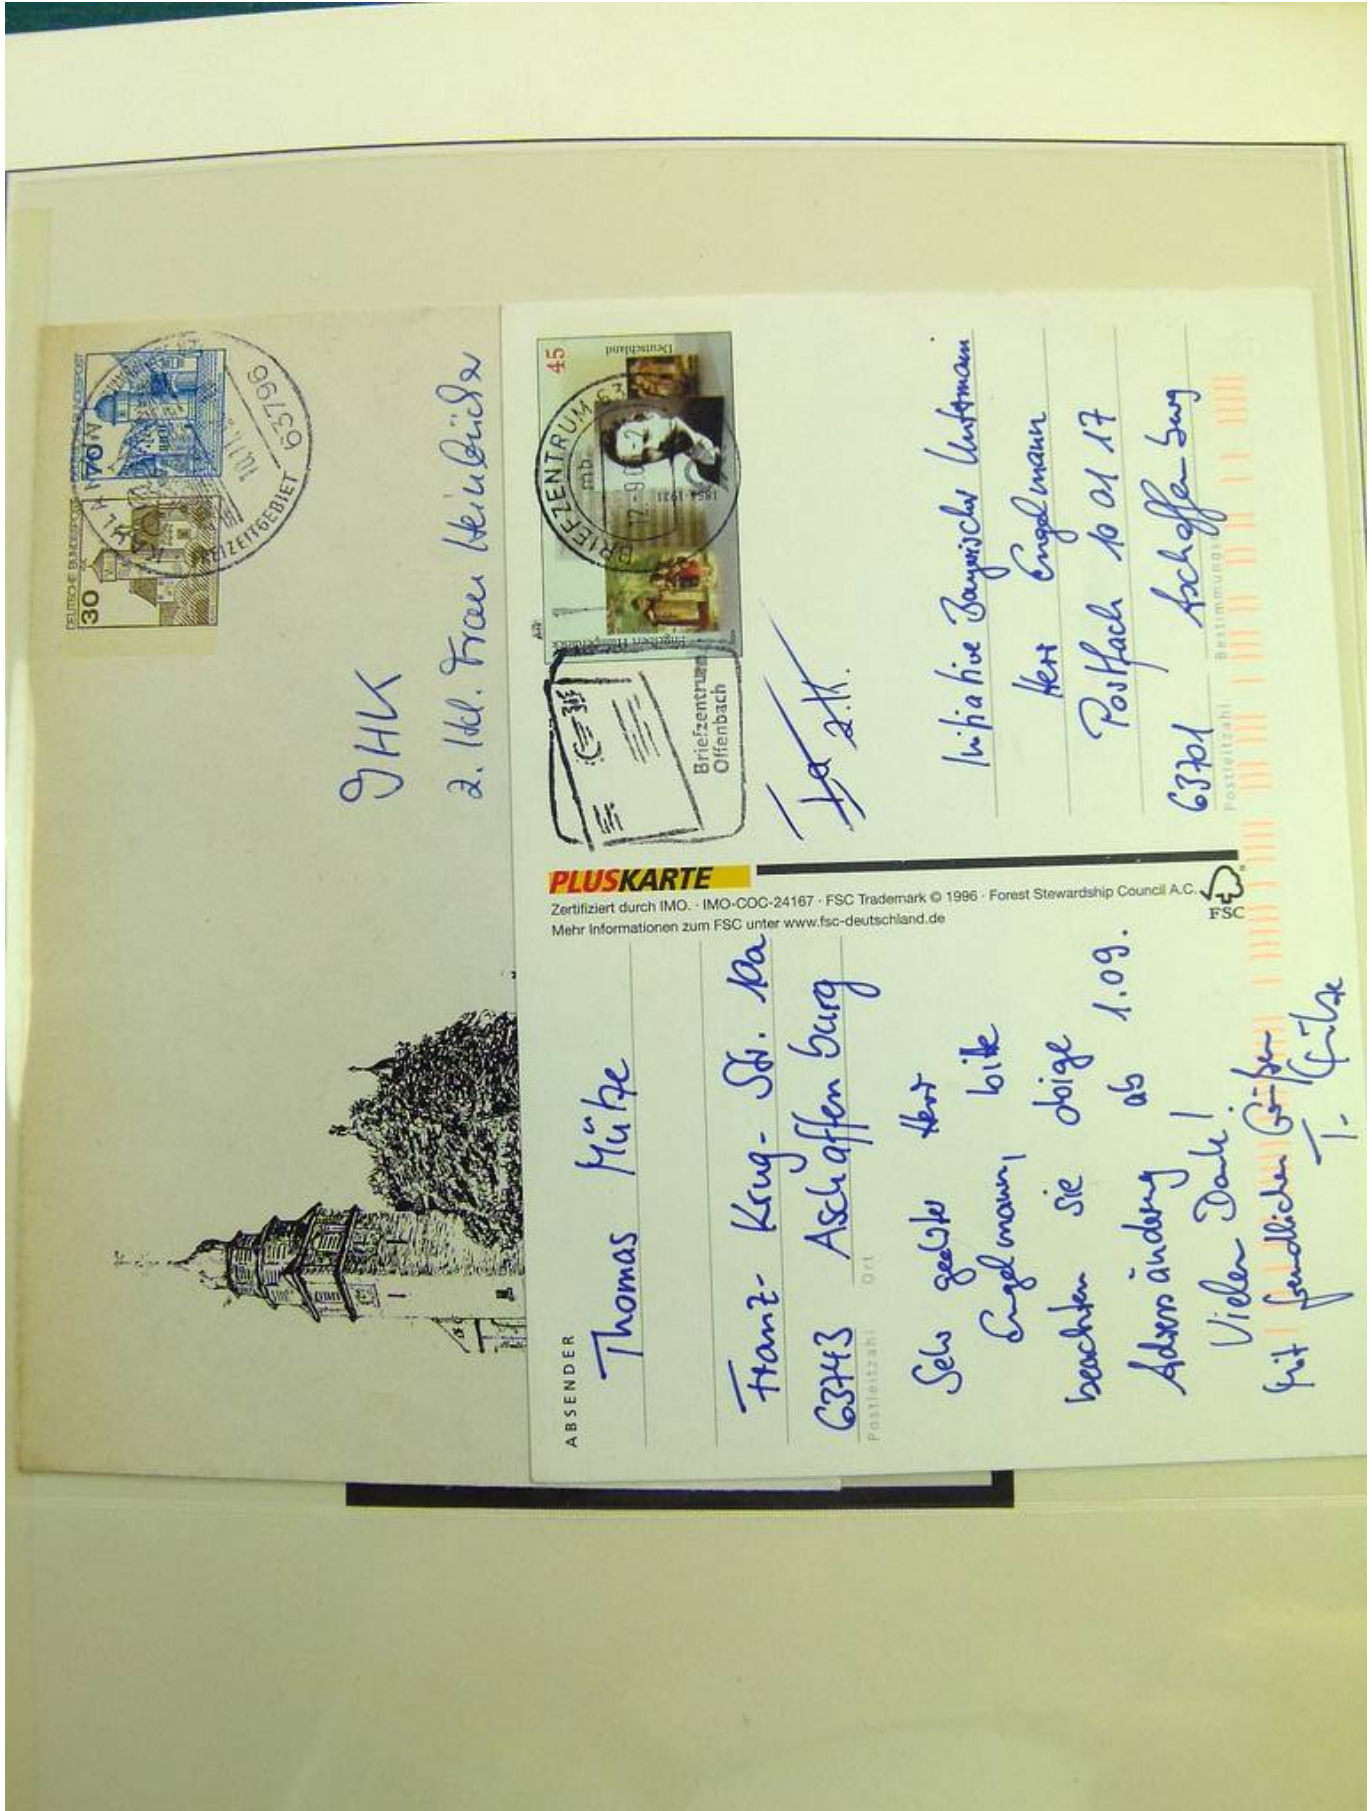 DEUTSCHE BUNDESPOST
30
DEUTSCHE BUNDESPOST
70
KAHL A MAIN
63796
FREIZEITGEBIET
IHK
z. Hd. Frau Heinbücher
45
Deutschland
1854-1921
Engelbert Humperdinck
BRIEFZENTRUM 63
mb
Briefzentrum
Offenbach
z.K.
Initiative Bayerischer Untermain
Herr Engelmann
Postfach 10 01 17
63701 Aschaffenburg
Postleitzahl Bestimmungs
PLUSKARTE
Zertifiziert durch IMO. · IMO-COC-24167 · FSC Trademark © 1996 · Forest Stewardship Council A.C.
Mehr Informationen zum FSC unter www.fsc-deutschland.de
FSC
ABSENDER
Thomas Mütze
Franz-Krug-Str. 10a
63743 Aschaffenburg
Postleitzahl Ort
Sehr geehrter Herr
Engelmann, bitte
beachten sie obige
Adressänderung ab 1.09.
Vielen Dank!
Mit freundlichen Grüßen
T. Mütze